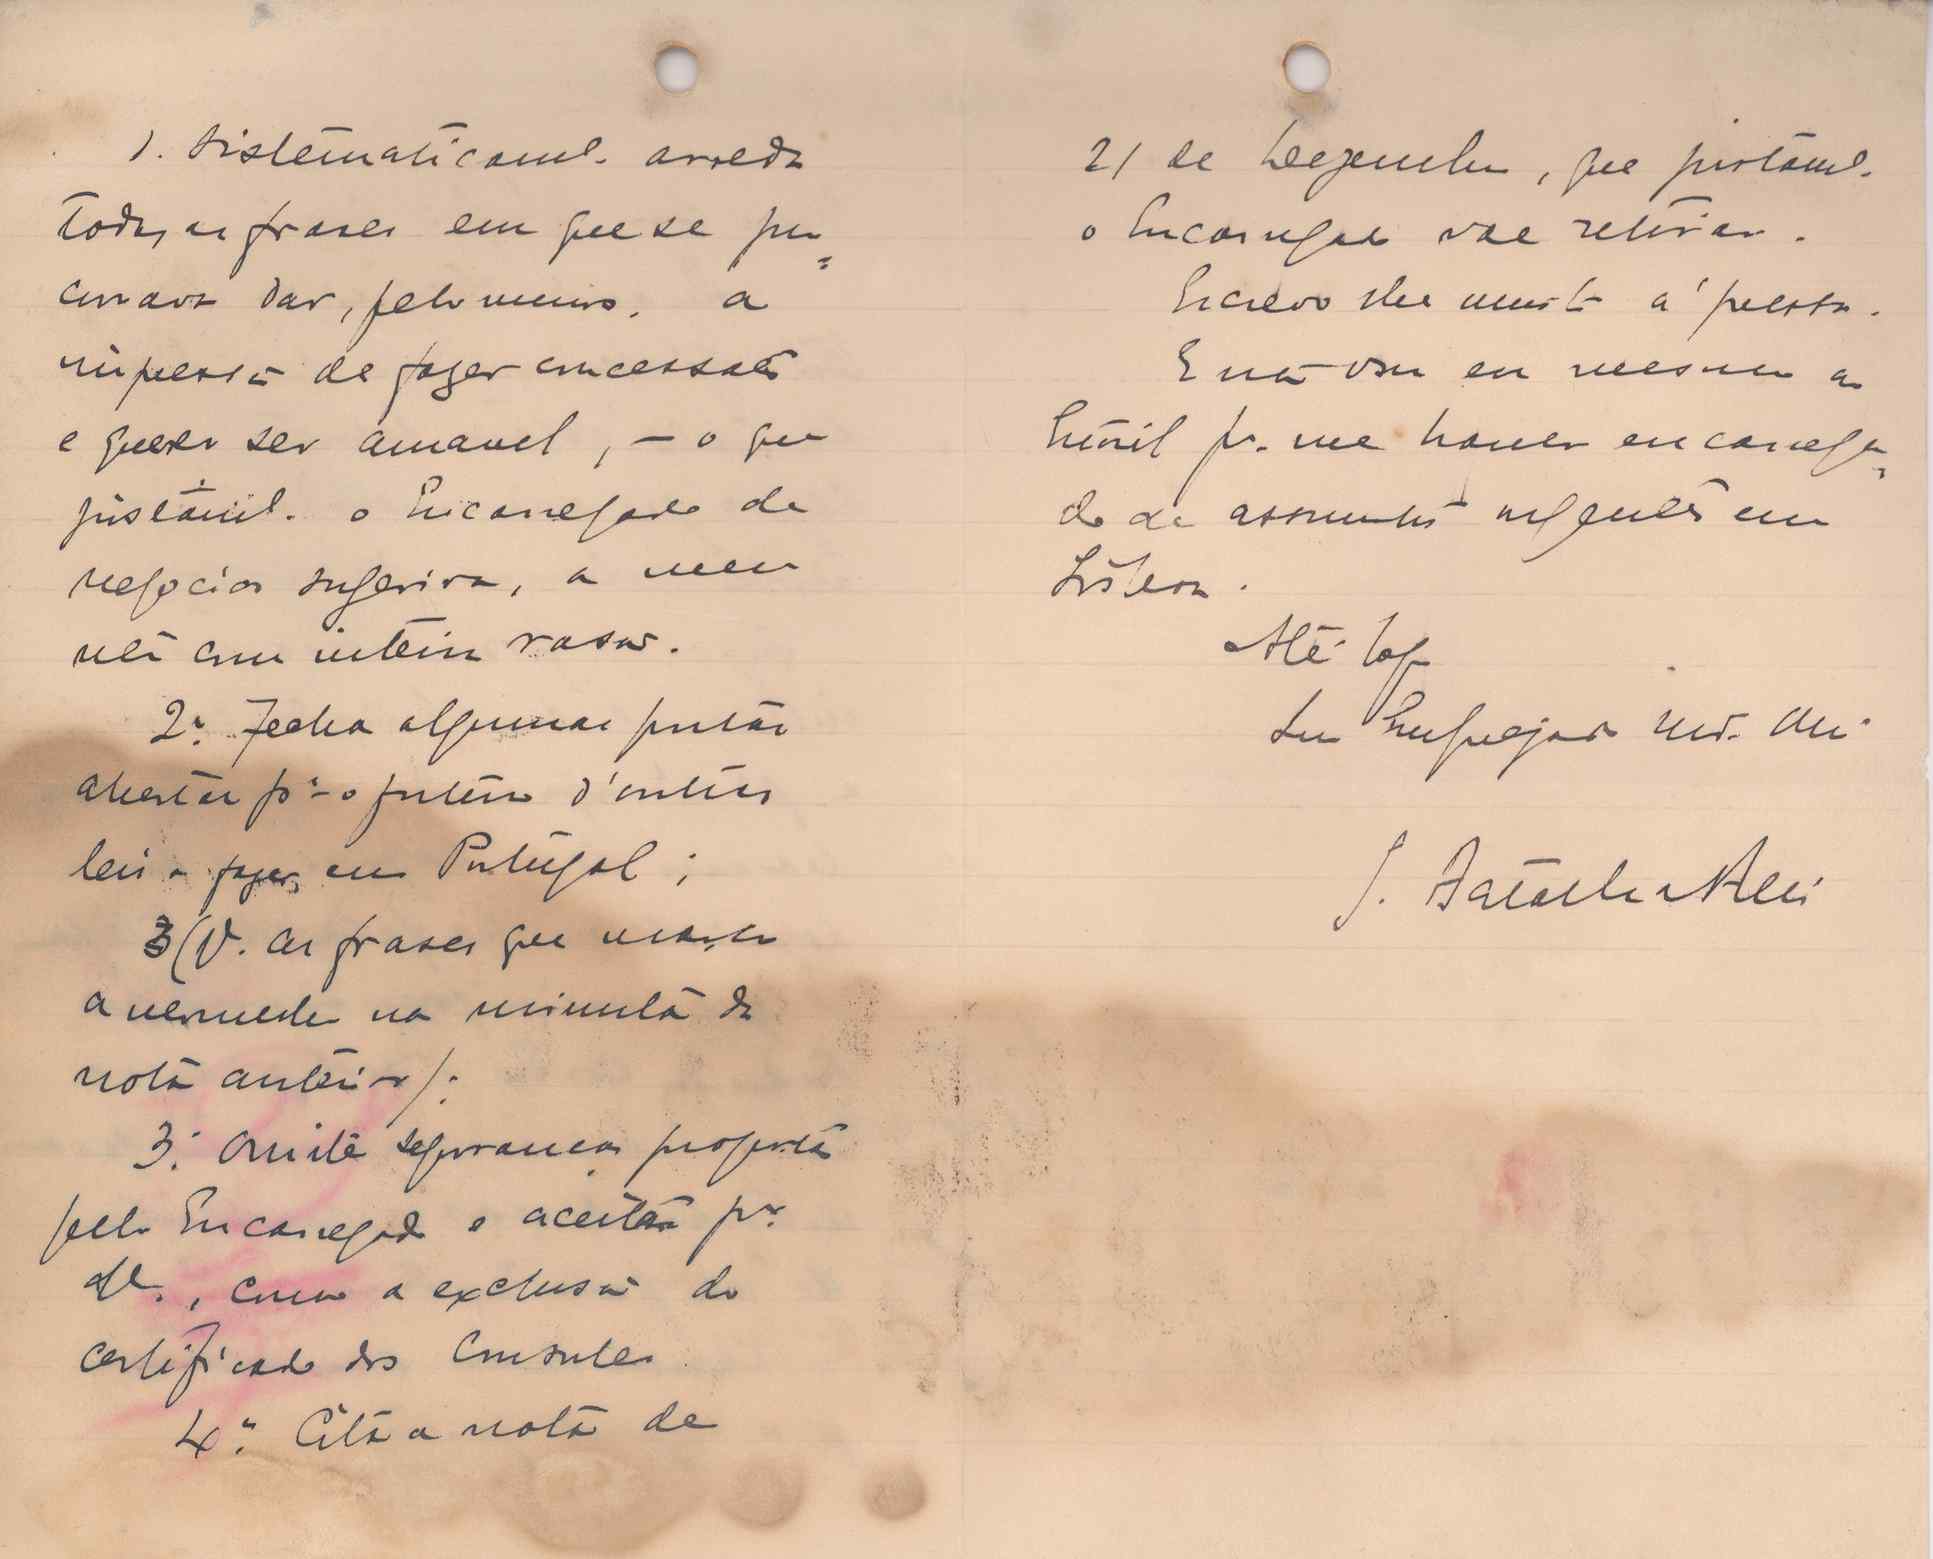 1. Sistematicame. arreda
todas as frases em que se pro=
curava dar, pelo menos, a
impressão de fazer concessões
e querer ser amavel, – o que
justame. o Encarregado de
negocios sugerira, a meu
ver com inteira rasão.
2.º Fecha algumas portas
abertas pª o futuro d'outras
leis a fazer em Portugal;
3 (V. as frases que marco
a vermelho na minuta da
nota anterior).
3.º Omite seguranças propostas
pelo Encarregado e aceitas pr.
V., como a exclusão do
certificado dos Consules
4.º Cita a nota de
21 de Dezembro, que justame.
o Encarregado vae retirar.
Escrevo lhe muito á pressa.
E não vou eu mesmo ao
Estoril pr. me haver encarrega=
do de assuntos urgentes em
Lisboa.
Até logo
Seu
J. Batalha Reis